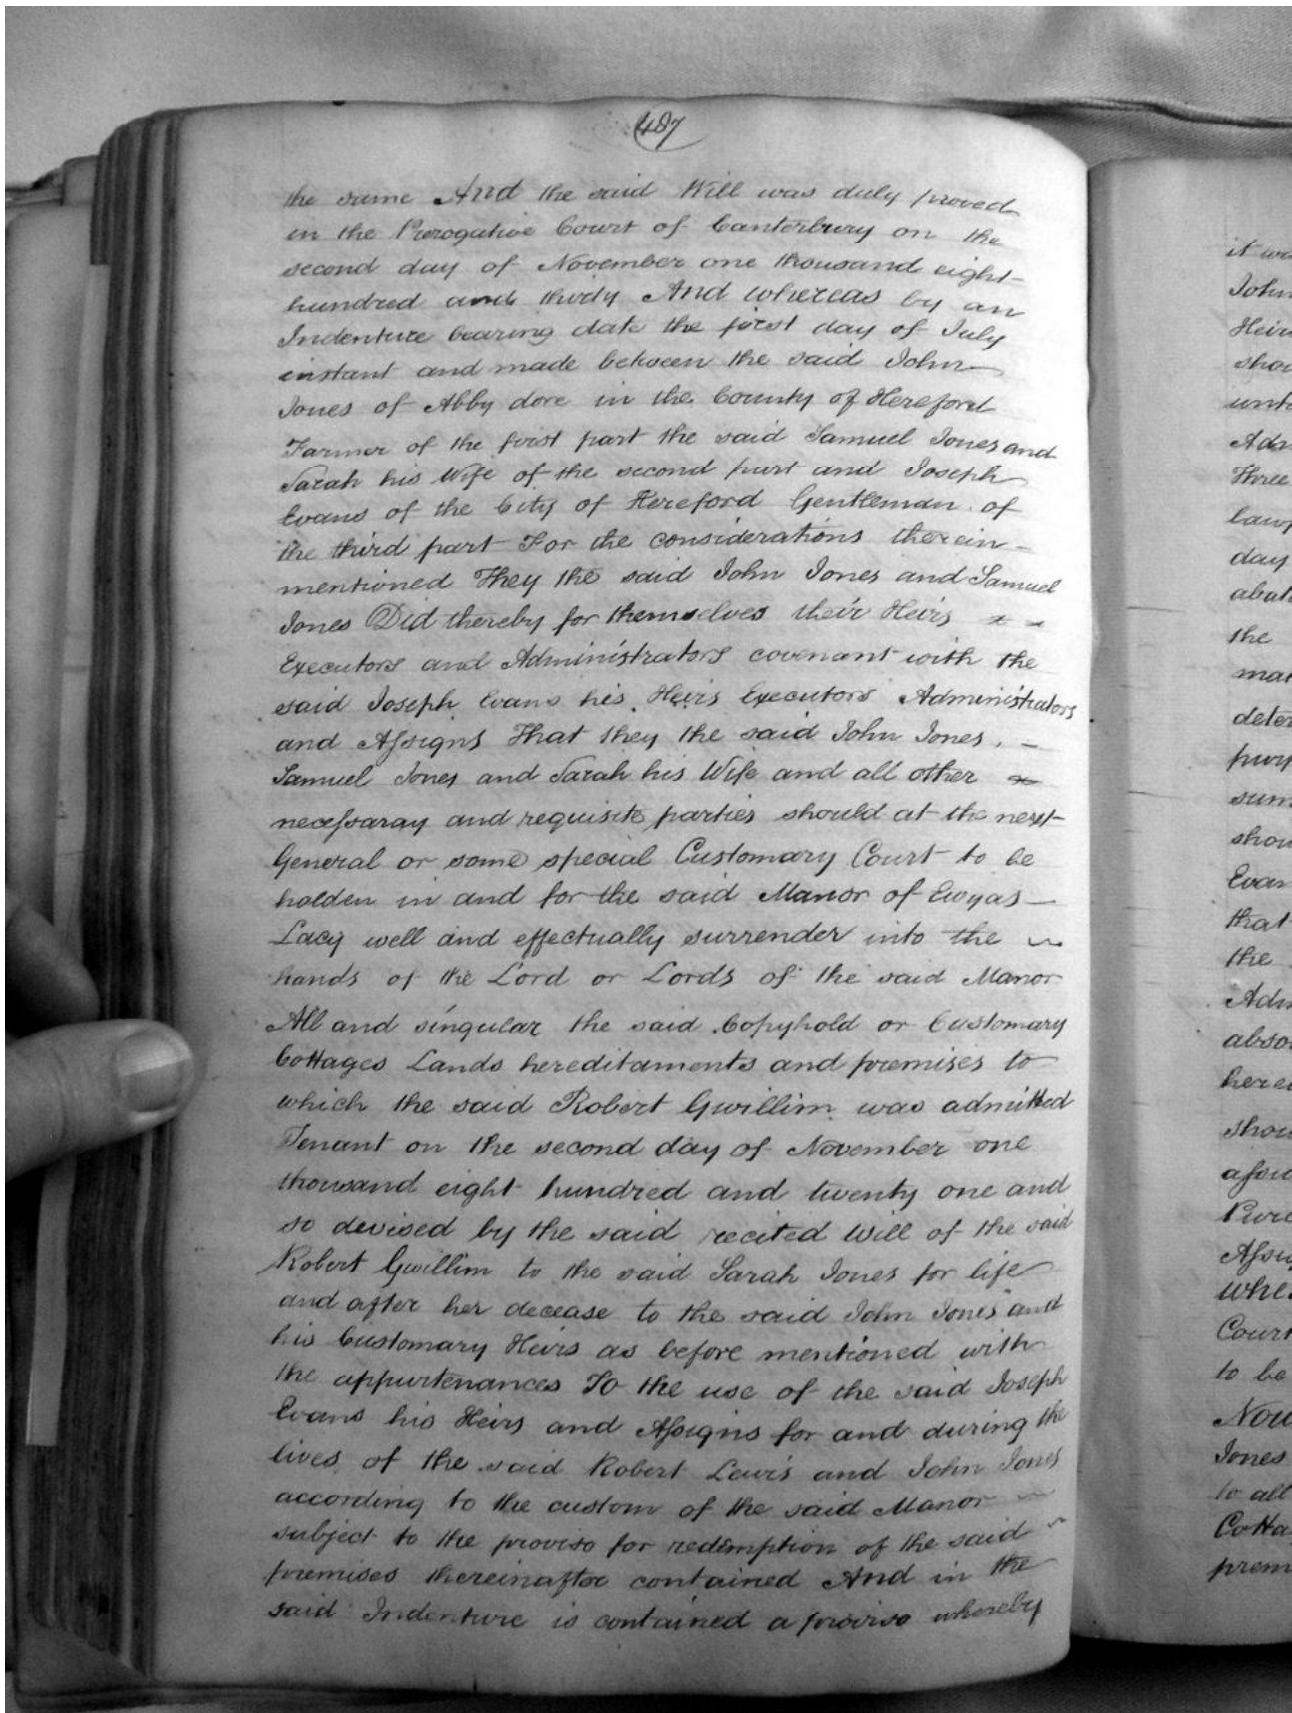 487
the same And the said Will was duly proved
in the Prerogative Court of Canterbury on the
second day of November one thousand eight
hundred and thirty And whereas by an
Indenture bearing date the first day of July
instant and made between the said John
Jones of Abby dore in the County of Hereford
Farmer of the first part the said Samuel Jones and
Sarah his Wife of the second part and Joseph
Evans of the City of Hereford Gentleman of
the third part For the considerations therein
mentioned They the said John Jones and Samuel
Jones Did thereby for themselves their Heirs
Executors and Administrators covenant with the
said Joseph Evans his Heirs Executors Administrators
and Assigns That they the said John Jones
Samuel Jones and Sarah his Wife and all other
necessaray and requisite parties should at the next
General or some special Customary Court to be
holden in and for the said Manor of Ewyas
Lacy well and effectually surrender into the
hands of the Lord or Lords of the said Manor
All and singular the said Copyhold or Customary
Cottages Lands hereditaments and premises to
which the said Robert Gwillim was admitted
Tenant on the second day of November one
thousand eight hundred and twenty one and
so devised by the said recited Will of the said
Robert Gwillim to the said Sarah Jones for life
and after her decease to the said John Jones and
his Customary Heirs as before mentioned with
the appurtenances To the use of the said Joseph
Evans his Heirs and Assigns for and during the
lives of the said Robert Lewis and John Jones
according to the custom of the said Manor
subject to the proviso for redemption of the said
premises thereinafter contained And in the
said Indenture is contained a proviso whereby
it
John
the
day
the
that
the
to be
Jones
to all